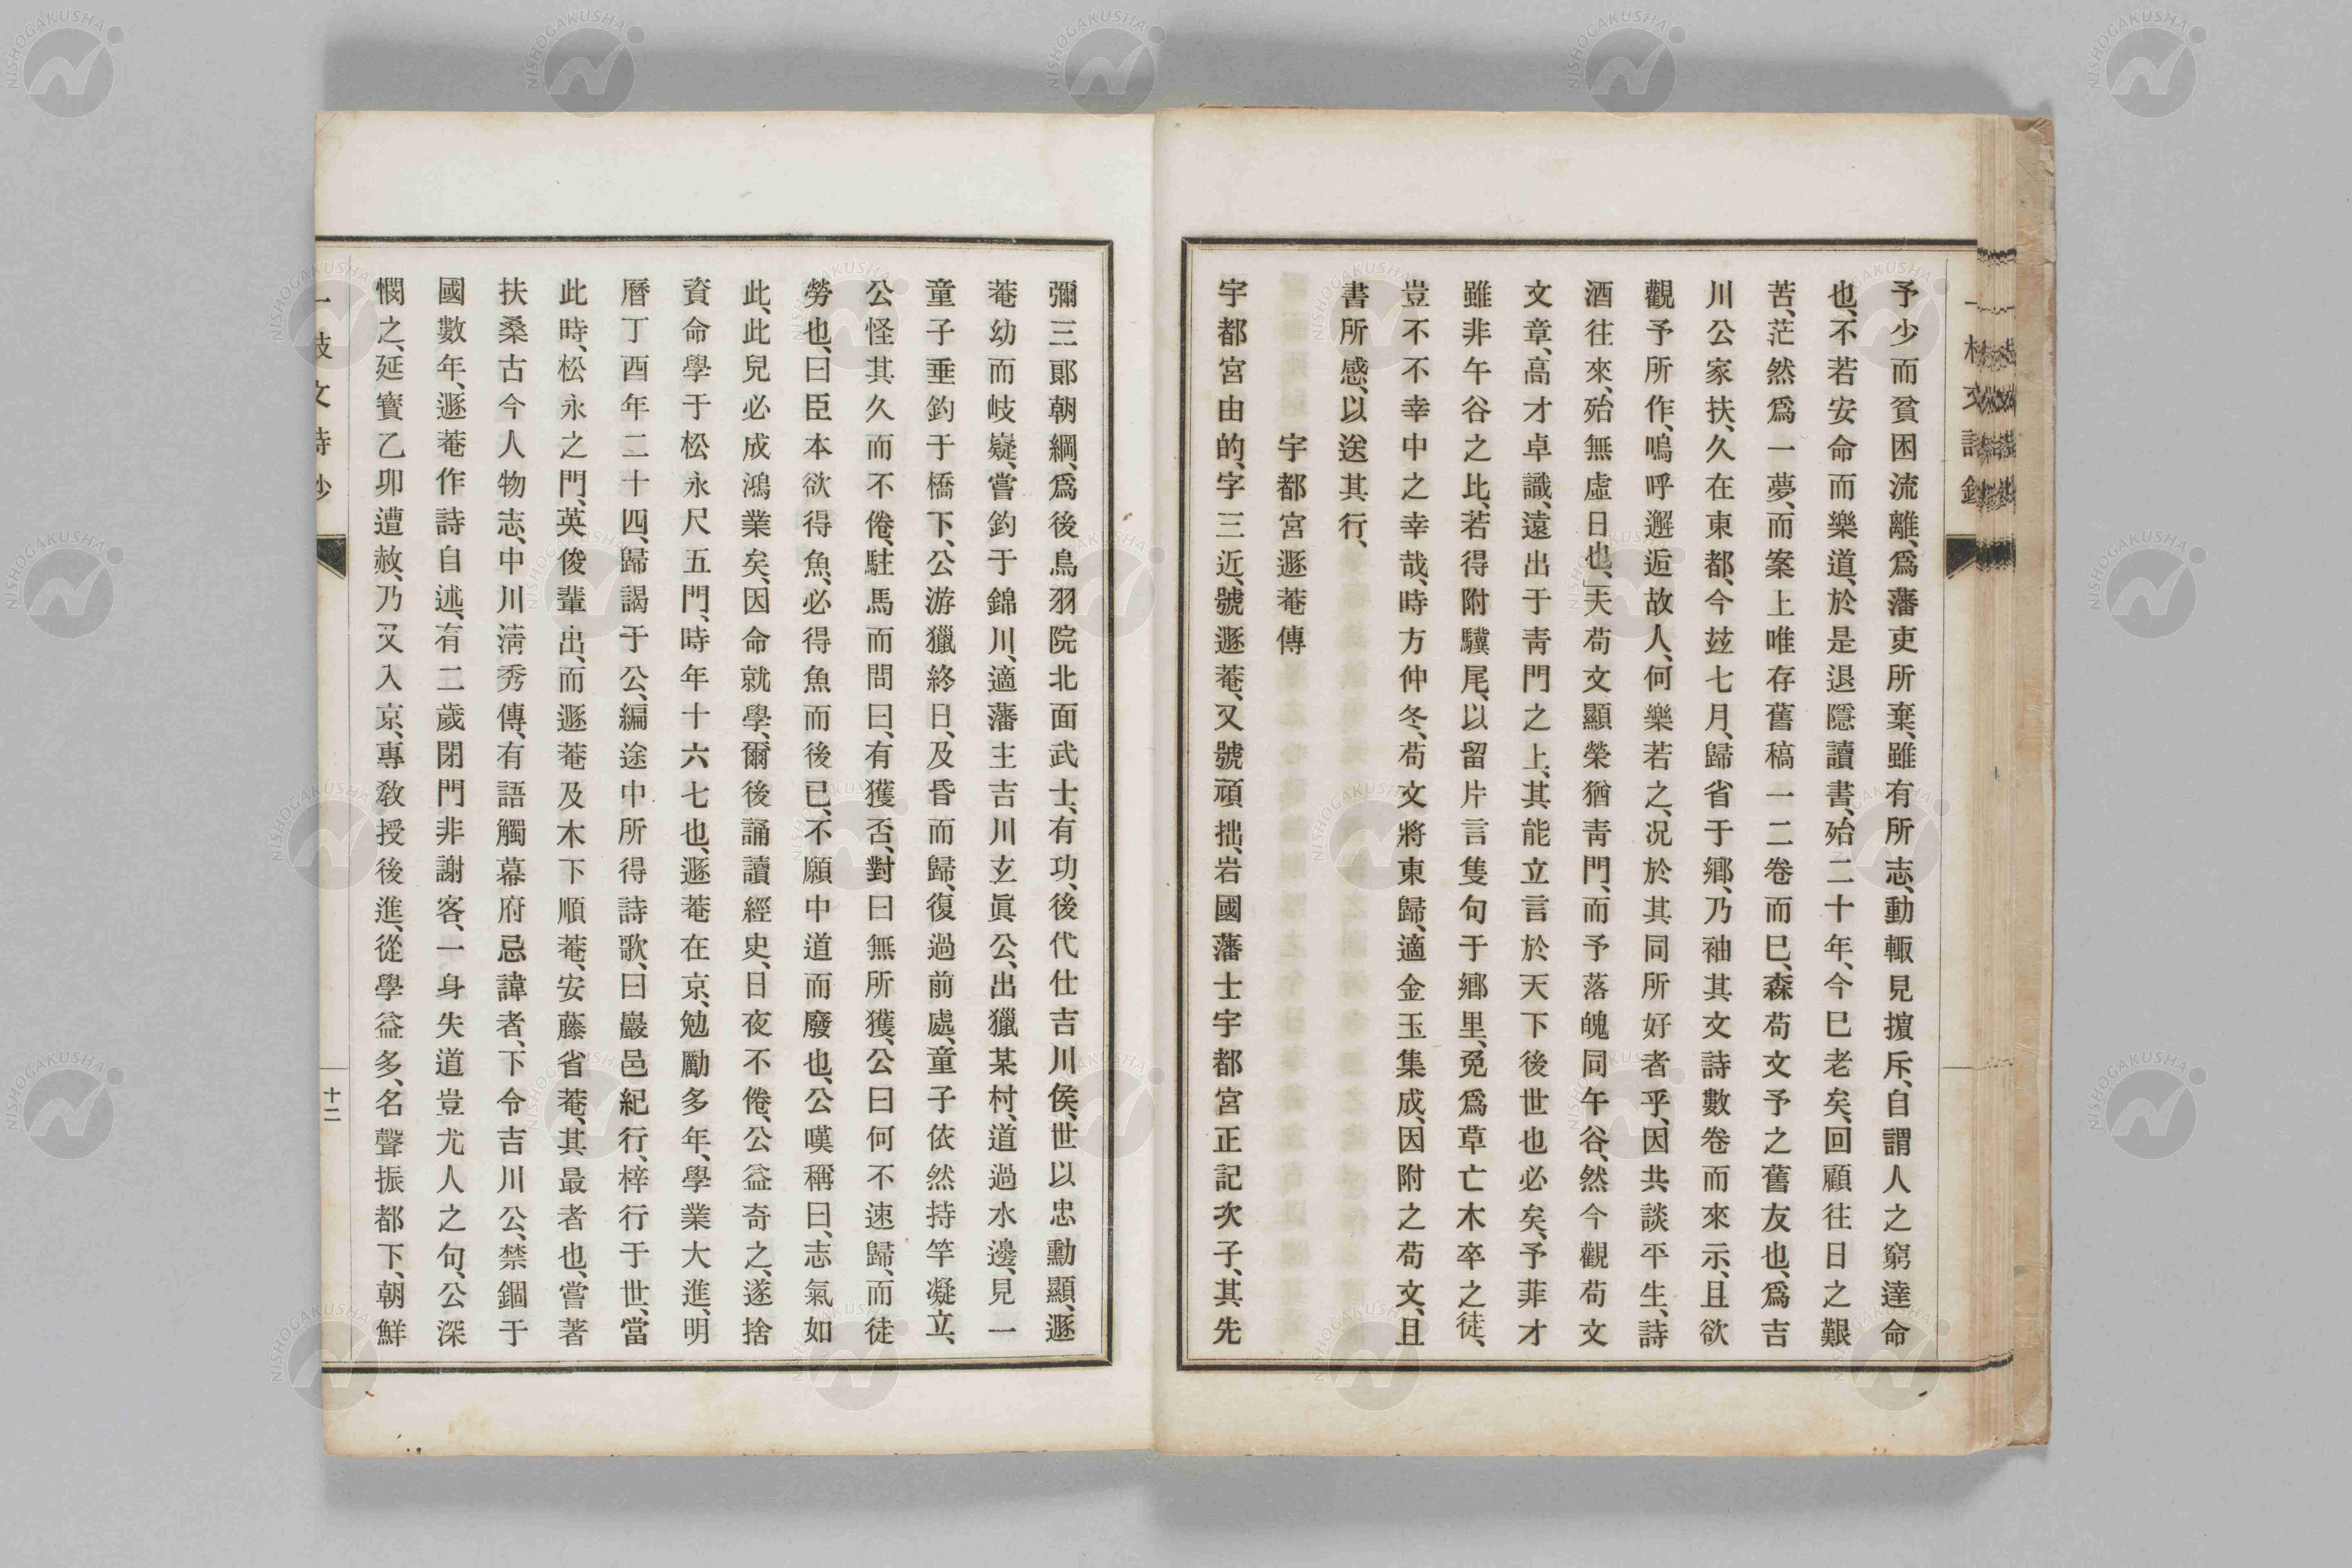 予少而貧困流離、爲藩吏所棄、雖有所志、動輙見擯斥、自謂人之窮達命
也、不若安命而樂道、於是退隱讀書、殆二十年、今巳老矣、回顧往日之艱
苦、茫然爲一夢、而案上唯存舊稿一二卷而巳、森荀文予之舊友也、爲吉
川公家扶、久在東都、今玆七月、歸省于鄕、乃袖其文詩數卷而來示、且欲
觀予所作、嗚呼邂逅故人、何樂若之、况於其同所好者乎、因共談平生、詩
酒往來、殆無虛日也、「天荀文顯榮猶靑門、而予落魄同午谷、然今觀荀文
文章、高才卓識、遠出于靑門之上、其能立言於天下後世也必矣、予菲才
雖非午谷之比、若得附驥尾、以留片言隻句于鄕里、免爲草亡木卒之徒、
豈不不幸中之幸哉、時方仲冬、荀文將東歸、適金玉集成、因附之荀文、且
書所感、以送其行、
宇都宮遯菴傳
宇都宮由的、字三近、號遯菴、又號頑拙、岩國藩士宇都宮正記次子、其先
彌三郞朝綱、爲後鳥羽院北面武士、有功、後代仕吉川侯、世以忠勳顯、遯
菴幼而岐嶷、嘗釣于錦川、適藩主吉川玄眞公、出獵某村、道過水邊、見一
童子垂釣于橋下、公游獵終日、及昏而歸、復過前處、童子依然持竿凝立、
公怪其久而不倦、駐馬而問曰、有獲否、對曰無所獲、公曰何不速歸、而徒
勞也、曰臣本欲得魚、必得魚而後已、不願中道而廢也、公嘆稱曰、志氣如
此、此兒必成鴻業矣、因命就學、爾後誦讀經史、日夜不倦、公益奇之、遂捨
資命學于松永尺五門、時年十六七也、遯菴在京、勉勵多年、學業大進、明
曆丁酉年二十四、歸謁于公、編途中所得詩歌、曰巖邑紀行、梓行于世、當
此時、松永之門、英俊輩出、而遯菴及木下順菴、安藤省菴、其最者也、嘗著
扶桑古今人物志、中川淸秀傳、有語觸幕府忌諱者、下令吉川公、禁錮于
國數年、遯菴作詩自述、有二歲閉門非謝客、一身失道豈尤人之句、公深
憫之、延寶乙卯遭赦、乃又入京、專敎授後進、從學益多、名聲振都下、朝鮮
十二